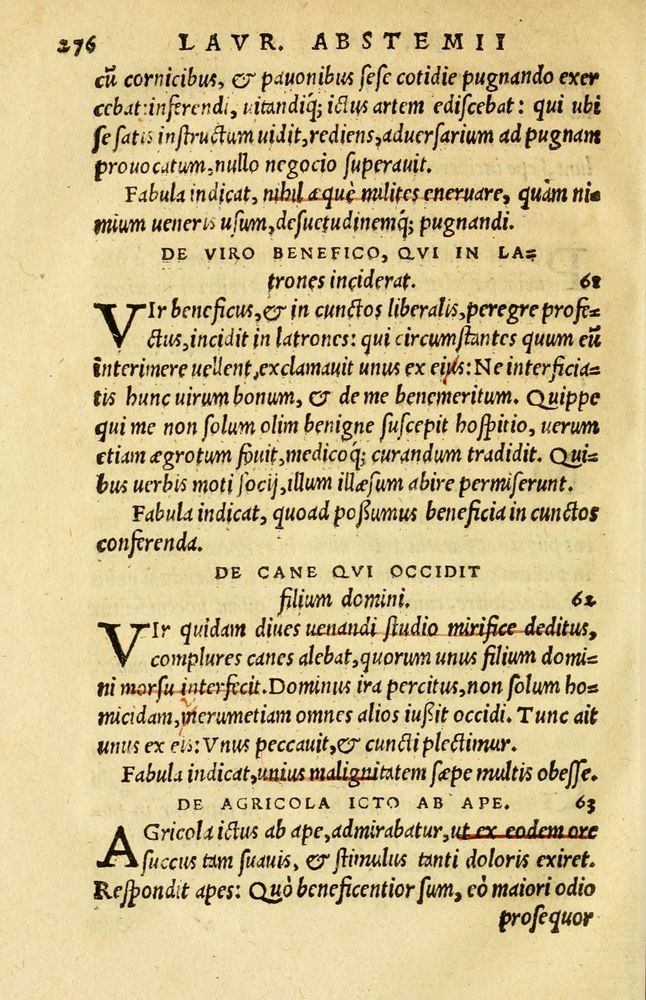 276 LAVR. ABSTEMII
cū cornicibus, & pauonibus sese cotidie pugnando exer
cebat: inferendi, uitandiq; ictus artem ediscebat: qui ubi
se satis instructum uidit, rediens, aduersarium ad pugnam
prouocatum, nullo negocio superauit.
Fabula indicat, nihil æquè milites eneruare, quàm ni=
mium ueneris usum, desuetudinemq́; pugnandi.
DE VIRO BENEFICO, QVI IN LA=
trones inciderat. 61
VIr beneficus, & in cunctos liberalis, peregre profe=
ctus, incidit in latrones: qui circumstantes quum eū
interimere uellent, exclamauit unus ex eijs: Ne interficia=
tis hunc uirum bonum, & de me benemeritum. Quippe
qui me non solum olim benigne suscepit hospitio, uerum
etiam ægrotum fouit, medicoq́; curandum tradidit. Qui=
bus uerbis moti socij, illum illæsum abire permiserunt.
Fabula indicat, quoad possumus beneficia in cunctos
conferenda.
DE CANE QVI OCCIDIT
filium domini. 62
VIr quidam diues uenandi studio mirifice deditus,
complures canes alebat, quorum unus filium domi=
ni morsu interfecit. Dominus ira percitus, non solum ho=
micidam, uerumetiam omnes alios iussit occidi. Tunc ait
unus ex eis: Vnus peccauit, & cuncti plectimur.
Fabula indicat, unius malignitatem sæpe multis obesse.
DE AGRICOLA ICTO AB APE. 63
AGricola ictus ab ape, admirabatur, ut ex eodem ore
succus tam suauis, & stimulus tanti doloris exiret.
Respondit apes: Quò beneficentior sum, eò maiori odio
prosequor